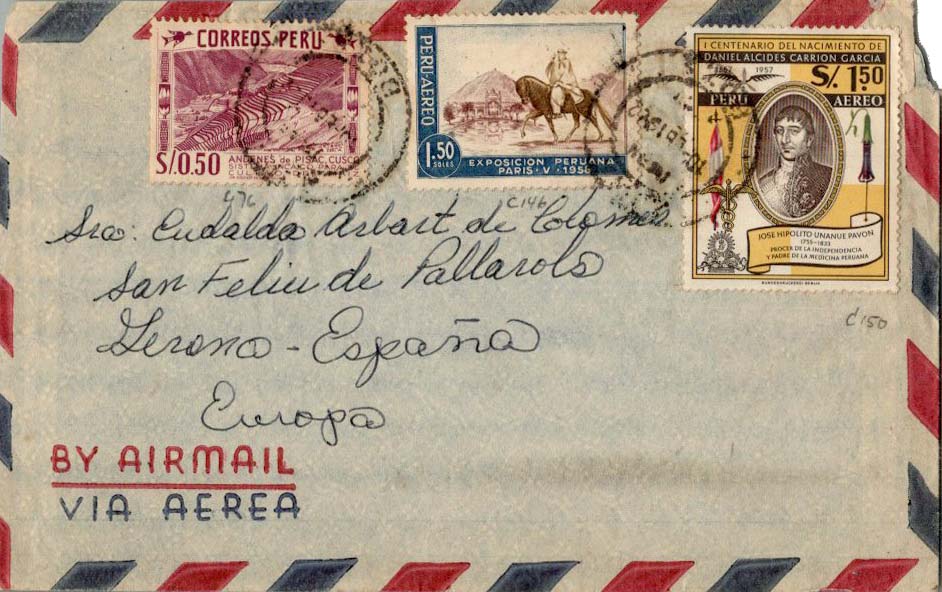 CORREOS PERU
S/0.50
ANDENES de PISAC, CUSCO
PERU-AEREO
1.50
SOLES
EXPOSICION PERUANA
PARIS · V · 1958
I CENTENARIO DEL NACIMIENTO DE
DANIEL ALCIDES CARRION GARCIA
1857 1957
S/. 1.50
PERU AEREO
JOSE HIPOLITO UNANUE PAVON
1755-1833
PROCER DE LA INDEPENDENCIA
Y PADRE DE LA MEDICINA PERUANA
BUNDESDRUCKEREI BERLIN
476
C146
C150
Sra: Eudalda Arbart de Colomer
San Feliu de Pallarols
Gerona - España
Europa
BY AIRMAIL
VIA AEREA